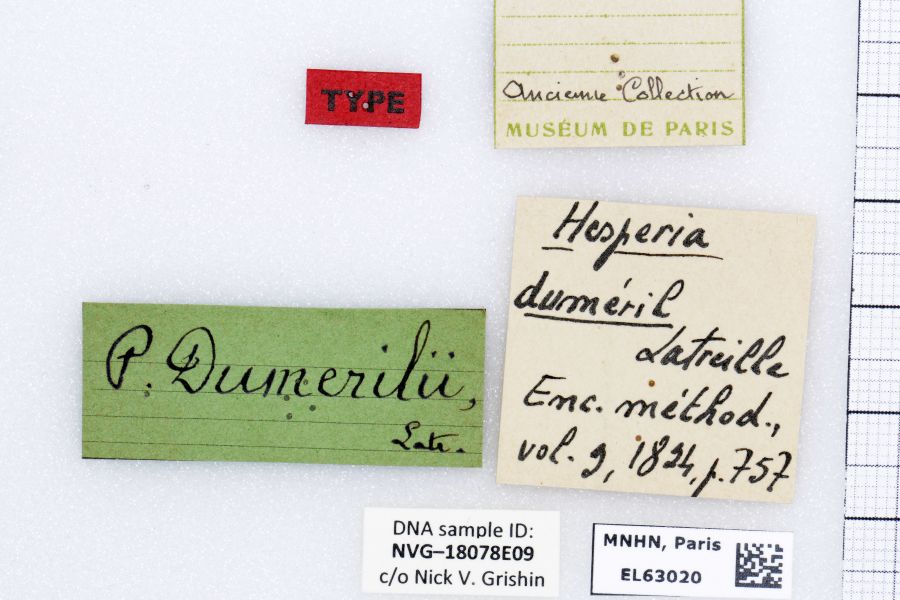 TYPE
Ancienne Collection
MUSÉUM DE PARIS
Hesperia
duméril
Latreille
Enc. méthod.,
vol. 9, 1824, p. 757
P. Dumerilii,
Latr.
DNA sample ID:
NVG–18078E09
c/o Nick V. Grishin
MNHN, Paris
EL63020